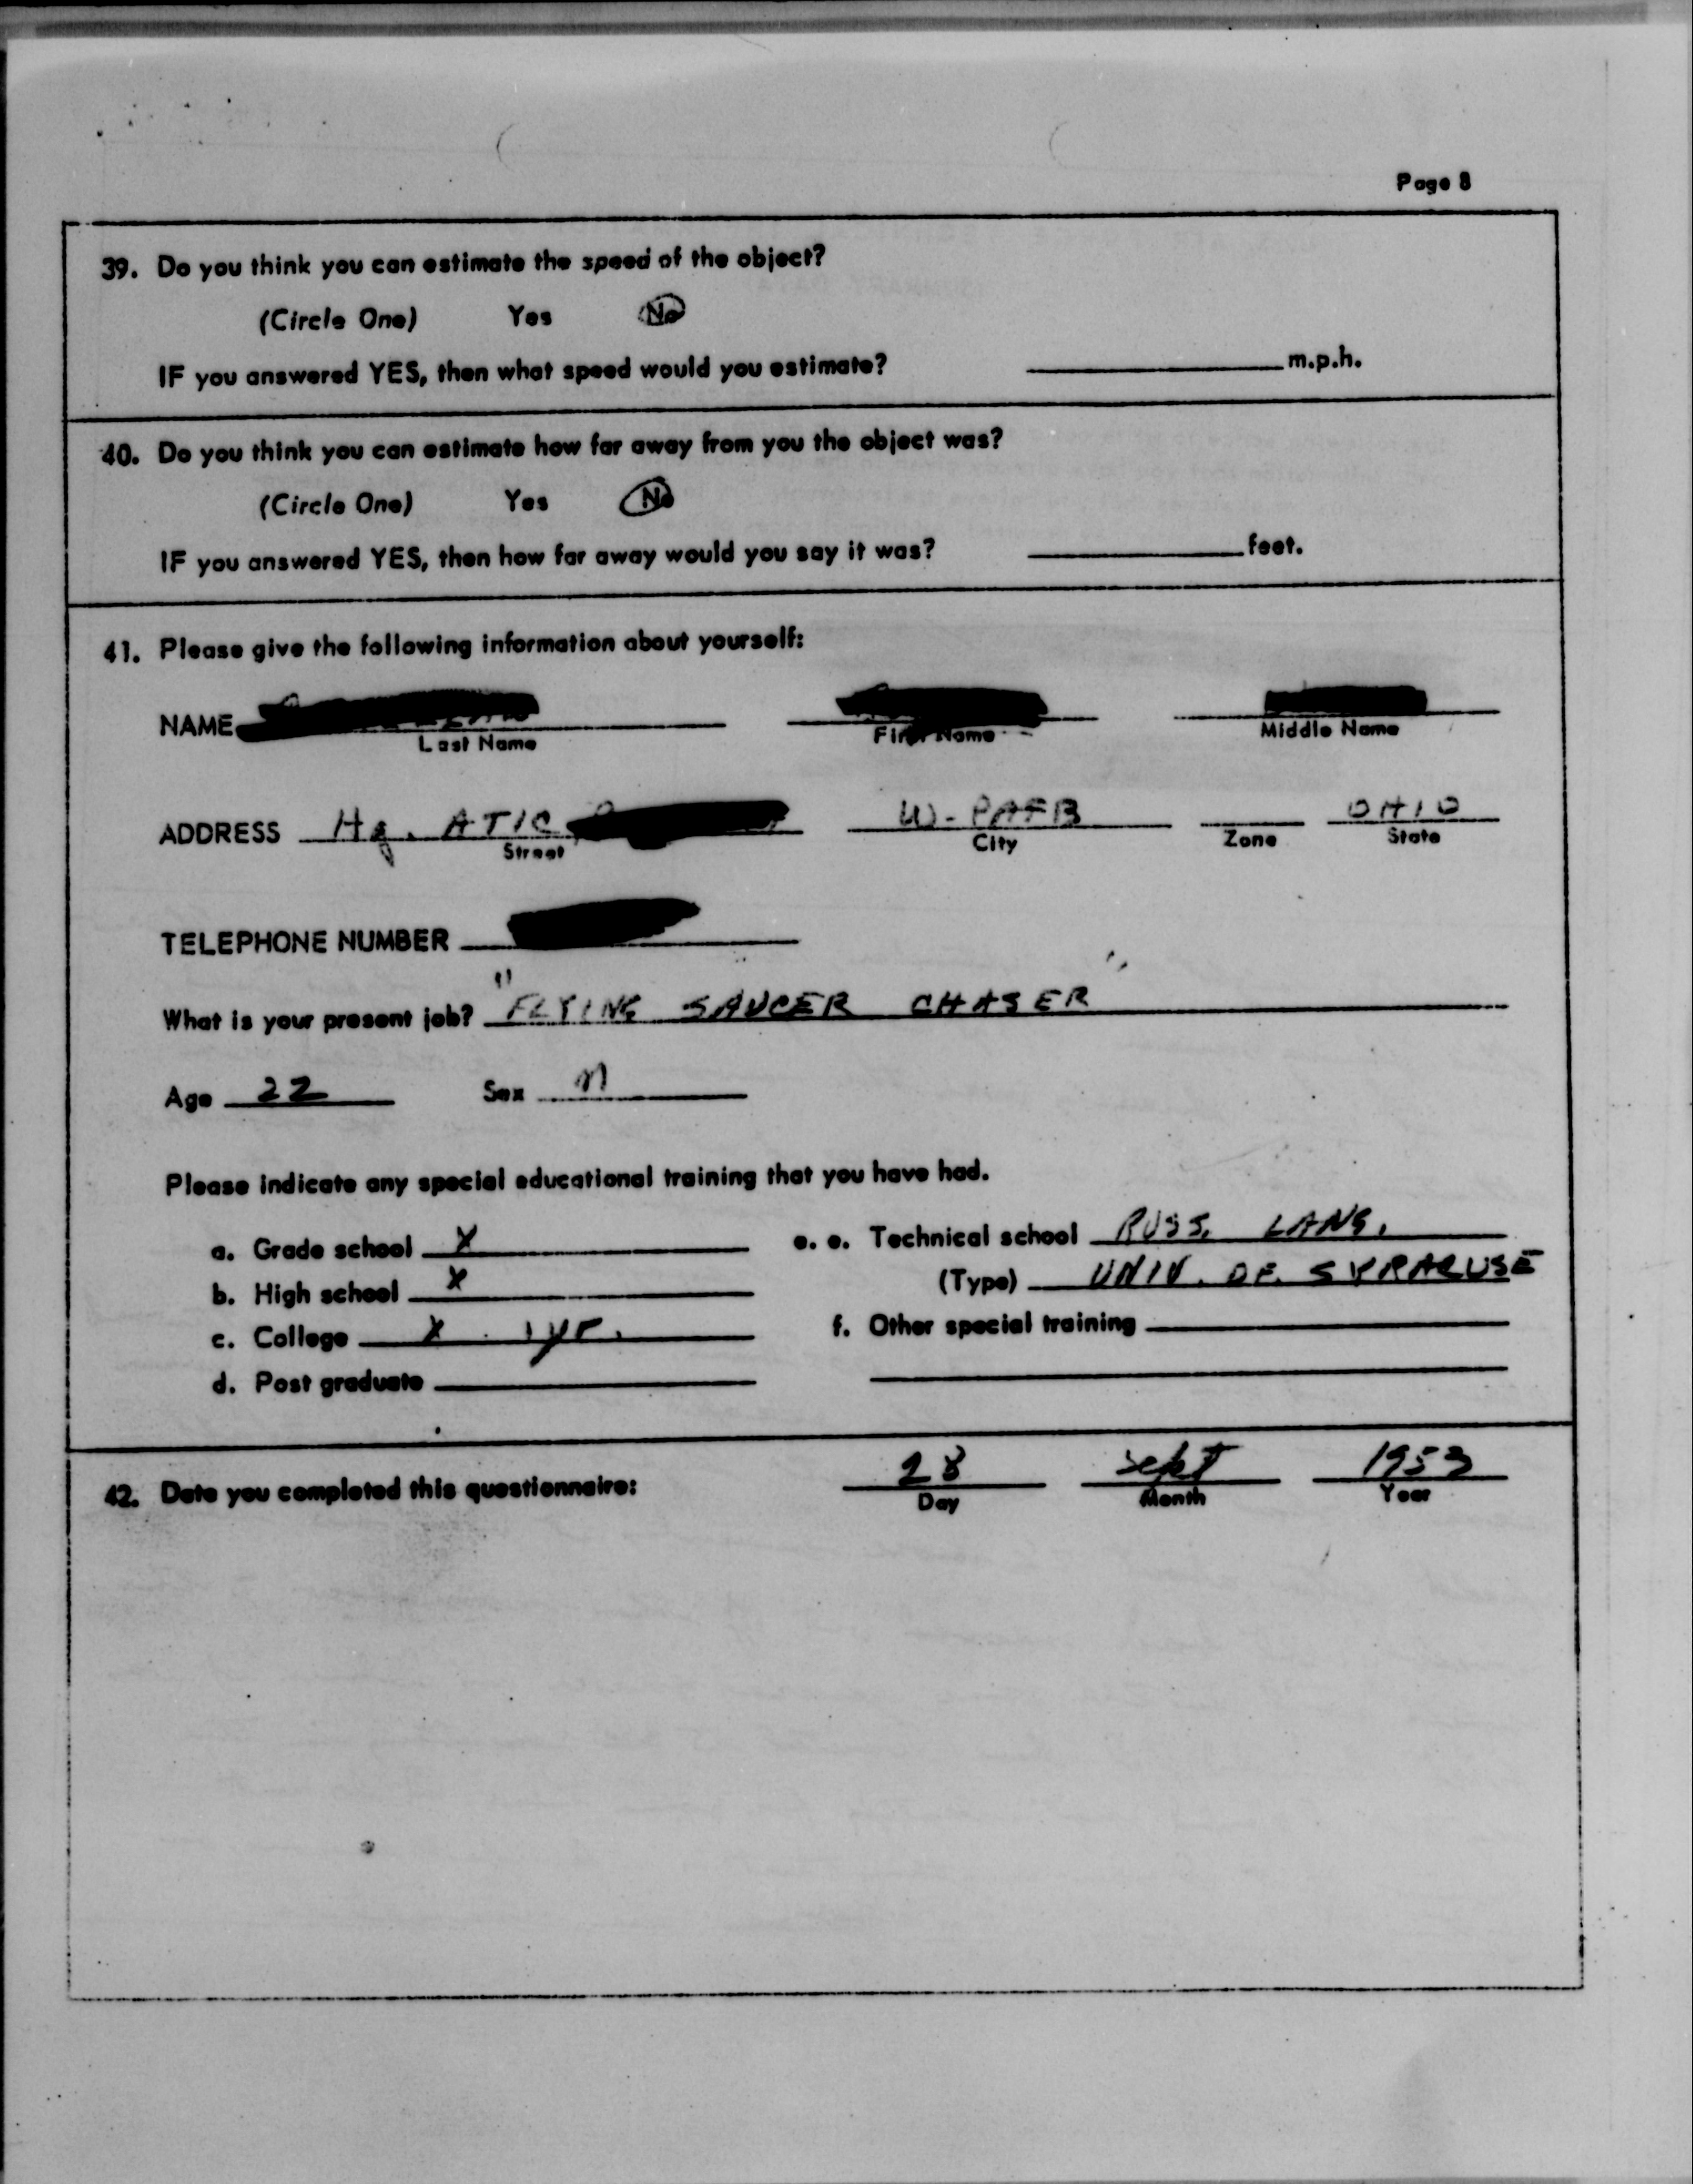 Page 8
39. Do you think you can estimate the speed of the object?
(Circle One) Yes No
IF you answered YES, then what speed would you estimate? m.p.h.
40. Do you think you can estimate how far away from you the object was?
(Circle One) Yes No
IF you answered YES, then how far away would you say it was? feet.
41. Please give the following information about yourself:
NAME
Last Name First Name Middle Name
ADDRESS Hq. ATIC W-PAFB OHIO
Street City Zone State
TELEPHONE NUMBER
What is your present job? "FLYING SAUCER CHASER"
Age 22 Sex M
Please indicate any special educational training that you have had.
a. Grade school X e. e. Technical school RUSS. LANG.
b. High school X (Type) UNIV. OF. SYRACUSE
c. College X 1 yr. f. Other special training
d. Post graduate
42. Date you completed this questionnaire: 28 Sept 1953
Day Month Year